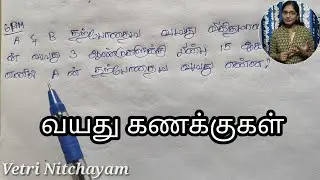 A & B தற்போதைய வயது
ன் வயது 3 ஆண்டுகளுக்கு பின்பு 15
எனில் A ன் தற்போதைய வயது என்ன?
வயது கணக்குகள்
Vetri Nitchayam